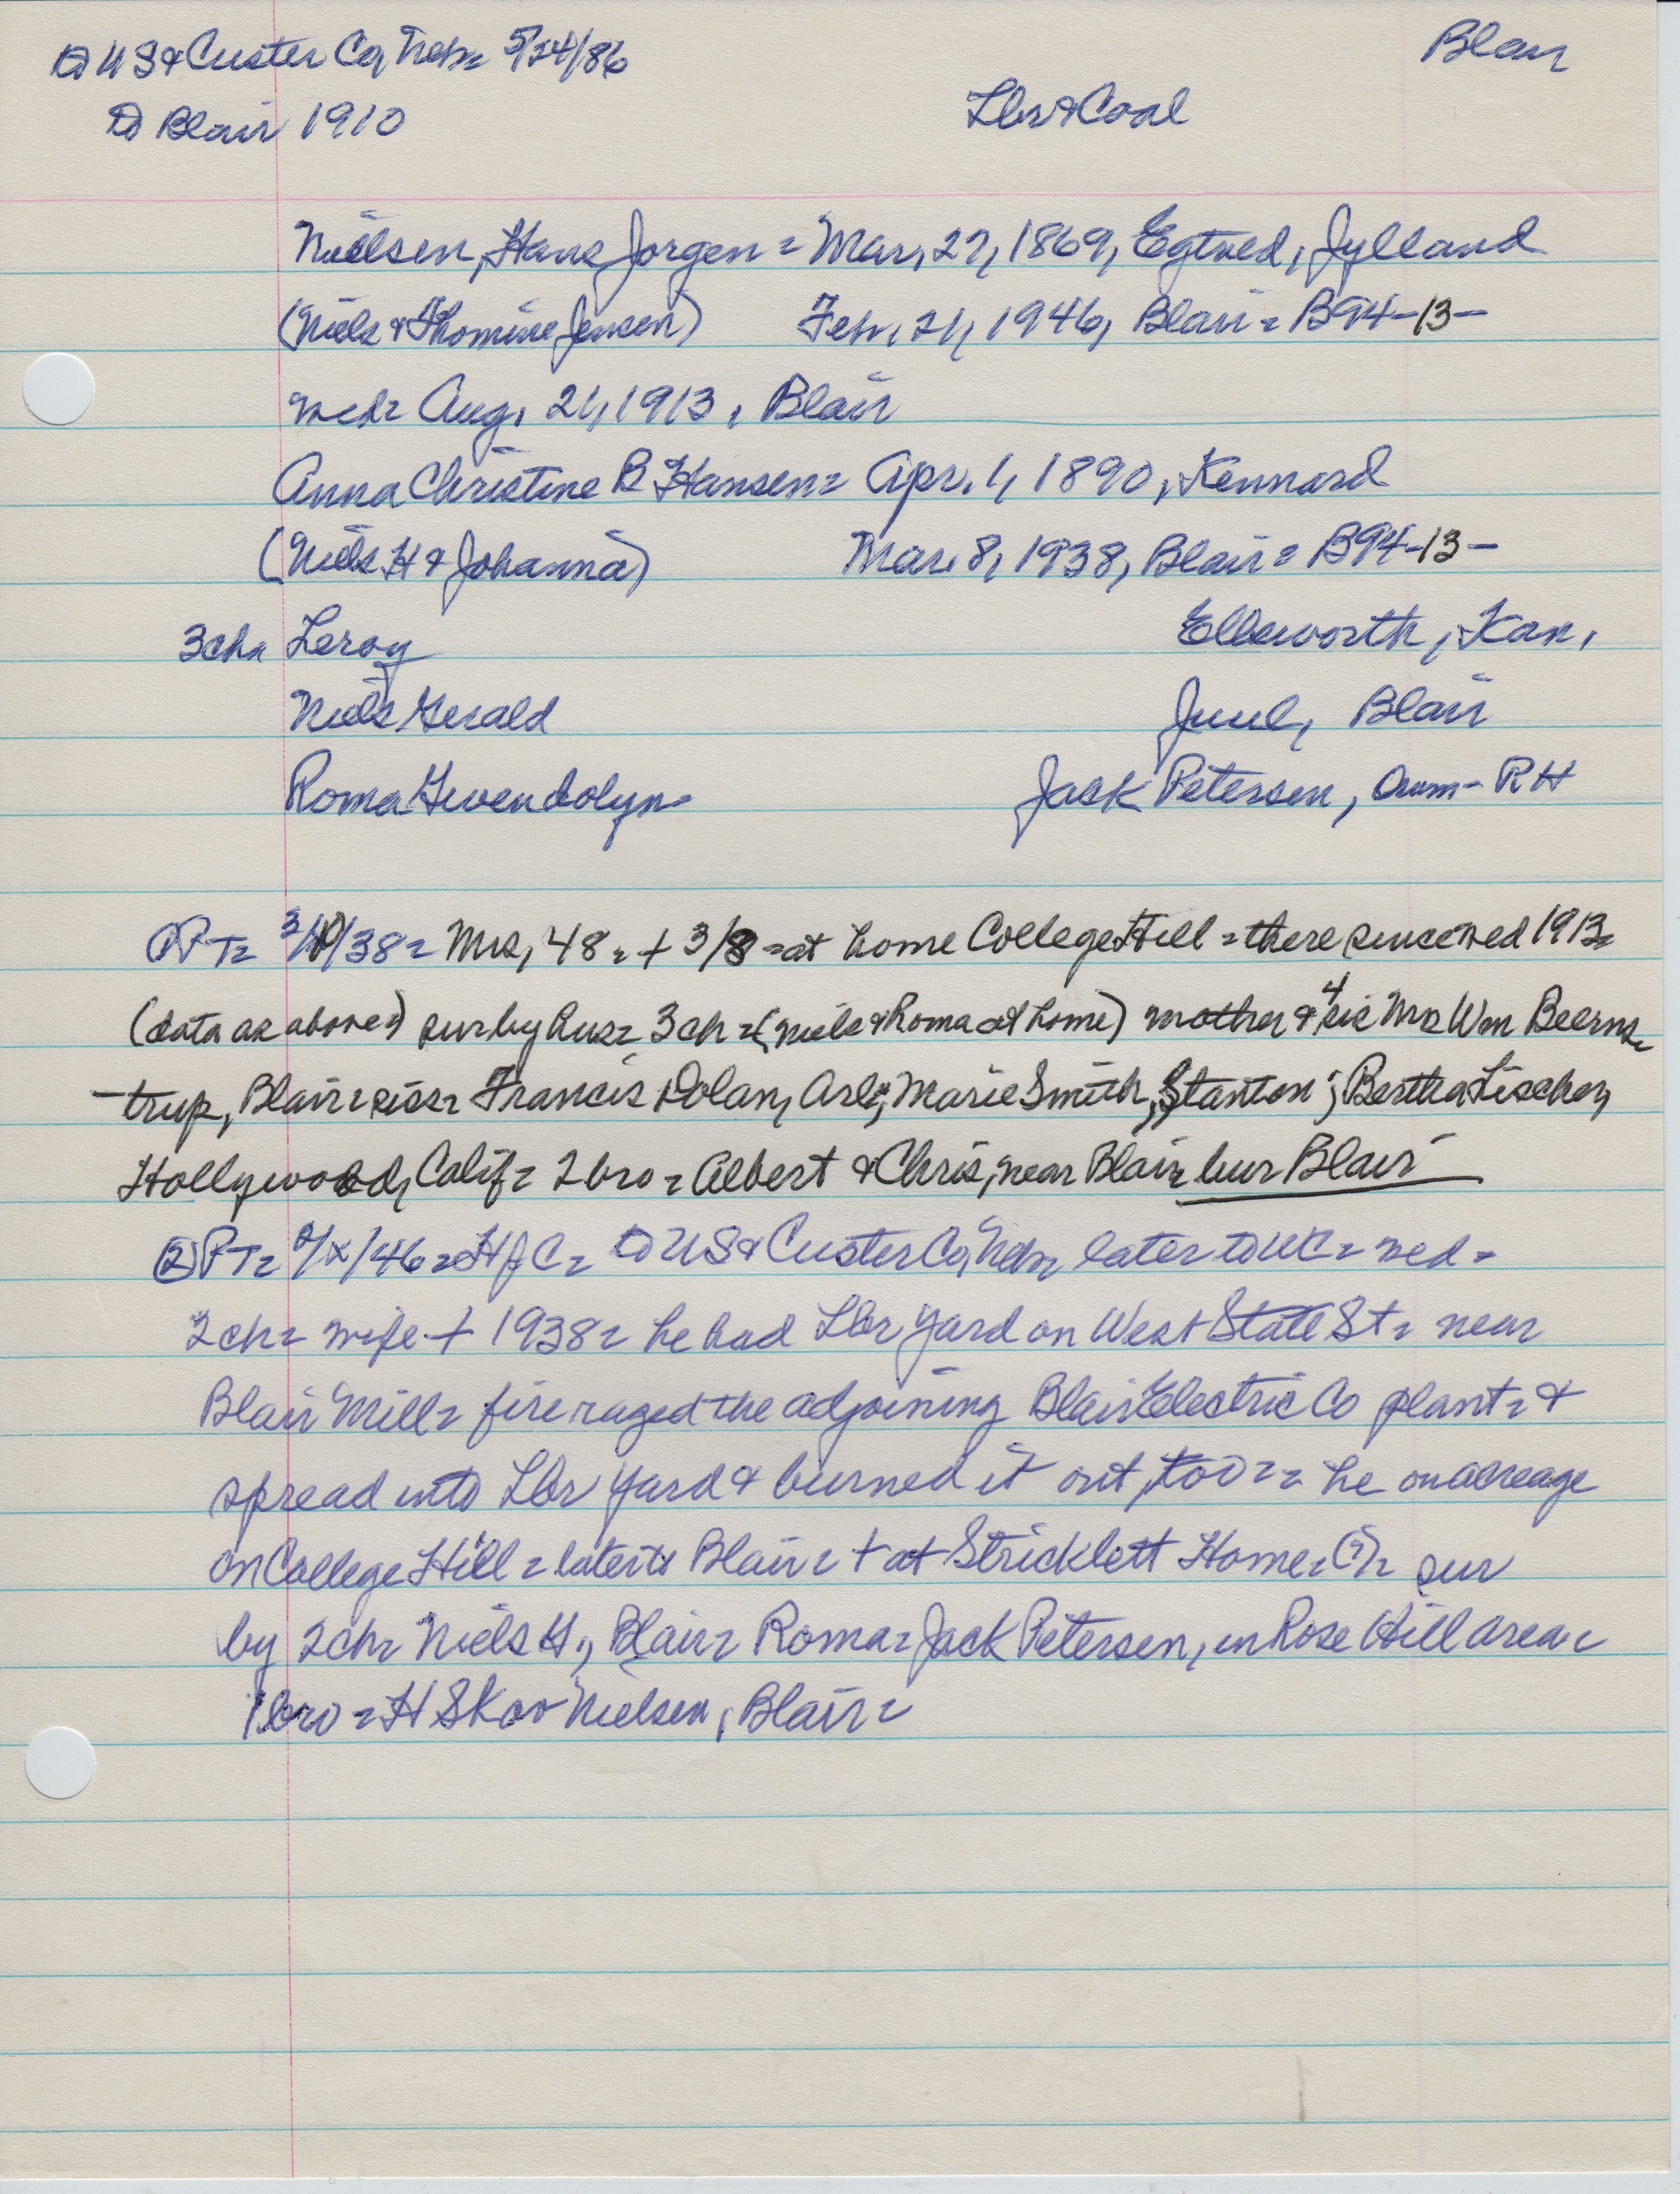 to US & Custer Co, Neb= 5/24/86
Blair
to Blair 1910
Lbr & Coal
Nielsen, Hans Jorgen = Mar, 27, 1869, Egtved, Jylland
(Niels & Thomine Jensen) Feb, 21, 1946, Blair = B94-13-
wed= Aug, 21, 1913, Blair
Anna Christine B Hansen= Apr. 1, 1890, Kennard
(Niels H & Johanna) Mar. 8, 1938, Blair = B94-13-
3ch= Leroy Ellsworth, Kan,
Niels Gerald Juul, Blair
Roma Gwendolyn= Jack Petersen, Orum - RH
PT= 3/10/38= Mrs, 48= + 3/8 = at home College Hill = there since wed 1913=
(data as above) sur by hus= 3ch = (Niels & Roma at home) mother & 4 sis Mrs Wm Beerns-
trup, Blair = sis= Francis Dolan, Arl; Marie Smith, Stanton; Bertha Fischer,
Hollywood, Calif= 2 bro = Albert & Chris, near Blair= bur Blair
② PT= /46= HJC= to US & Custer Co, Neb= later to WC = wed =
2ch= wife + 1938= he had Lbr yard on West State St= near
Blair Mill= fire raged the adjoining Blair Electric Co plant= &
spread into Lbr yard & burned it out, too = = he on acreage
on College Hill = later to Blair = + at Stricklett Home= (?)= sur
by 2ch= Niels H., Blair= Roma= Jack Petersen, in Rose Hill area=
1 bro = H Skov Nielsen, Blair =